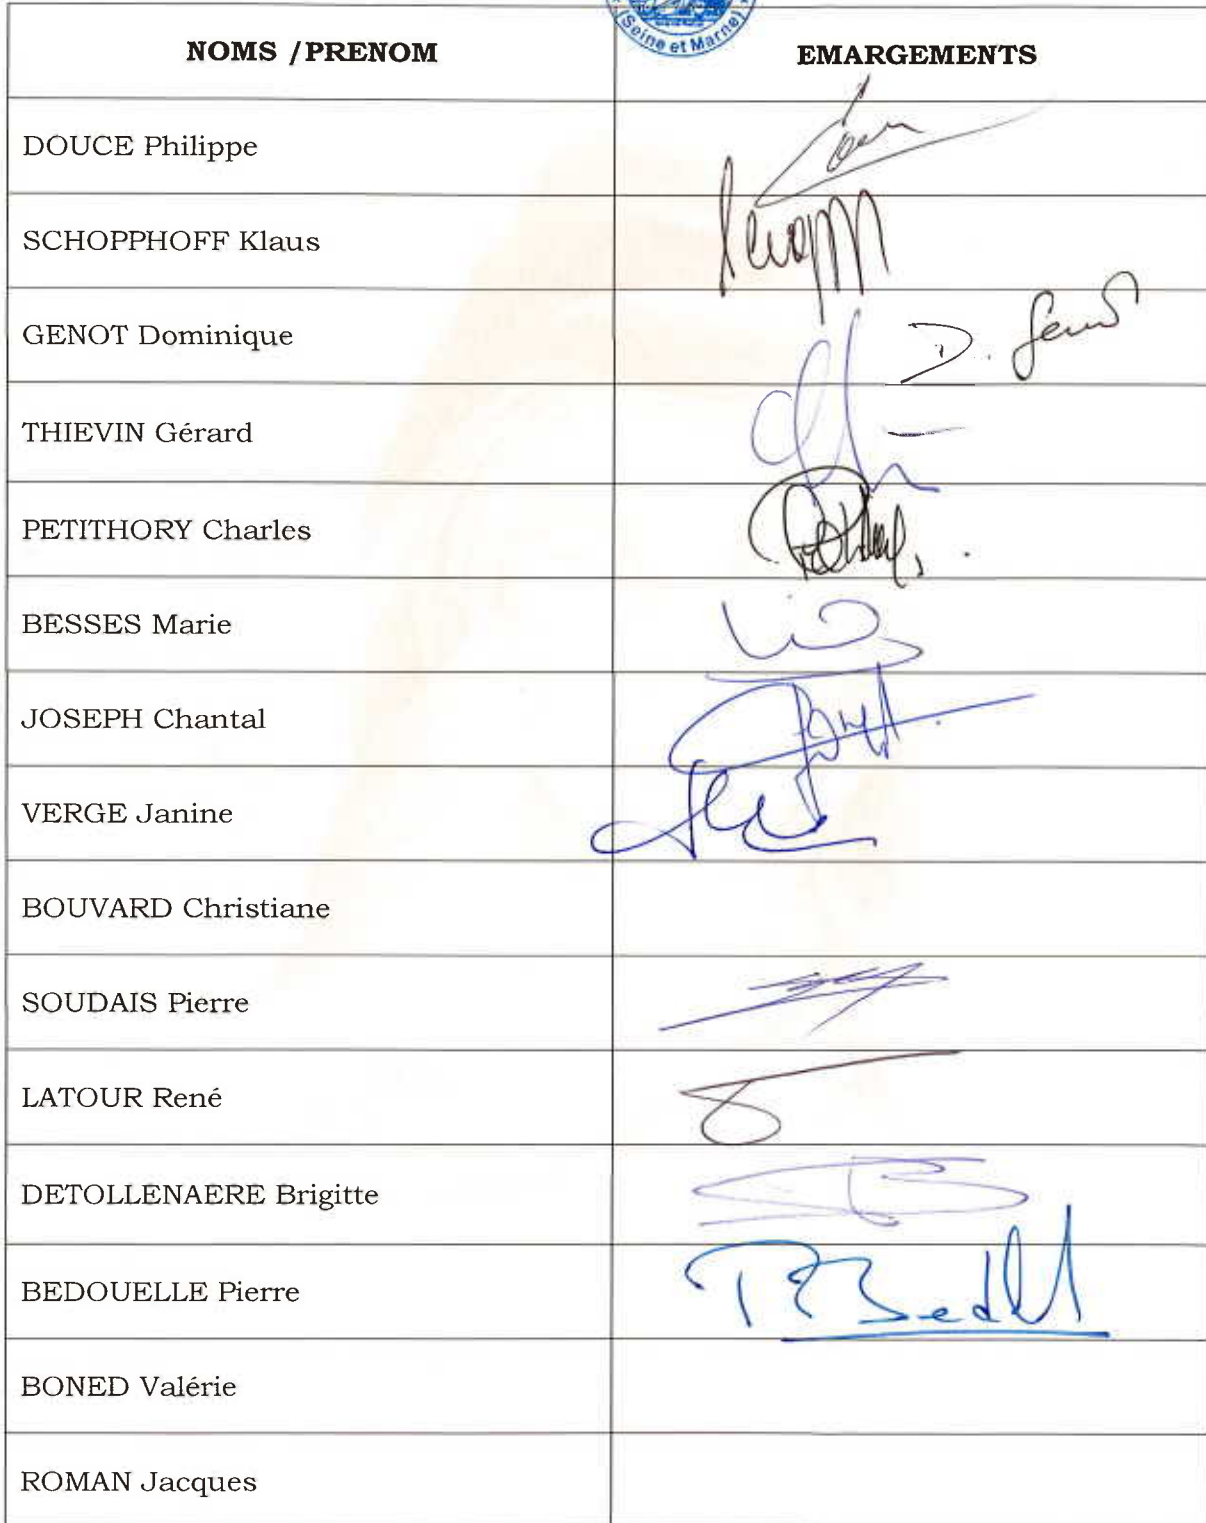 (Seine et Marne)
NOMS /PRENOM
EMARGEMENTS
DOUCE Philippe
SCHOPPHOFF Klaus
GENOT Dominique
D. Genot
THIEVIN Gérard
PETITHORY Charles
BESSES Marie
JOSEPH Chantal
VERGE Janine
BOUVARD Christiane
SOUDAIS Pierre
LATOUR René
DETOLLENAERE Brigitte
BEDOUELLE Pierre
BONED Valérie
ROMAN Jacques